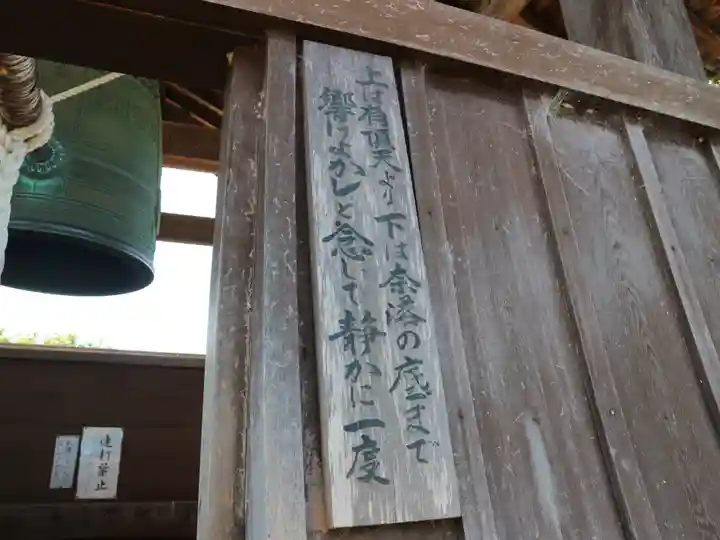 上は有頂天より下は奈落の底まで
響けよかしと念じて静かに一度
連打禁止